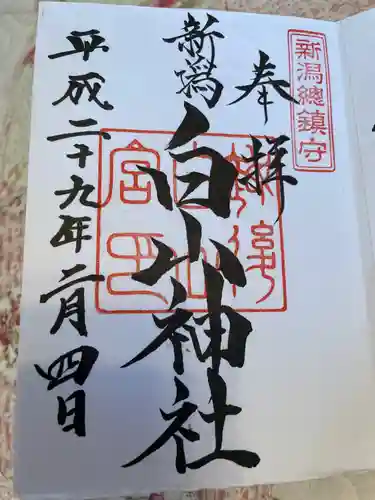 新潟總鎮守
奉拝
新潟
白山神社
越後白山宮印
平成二十九年二月四日